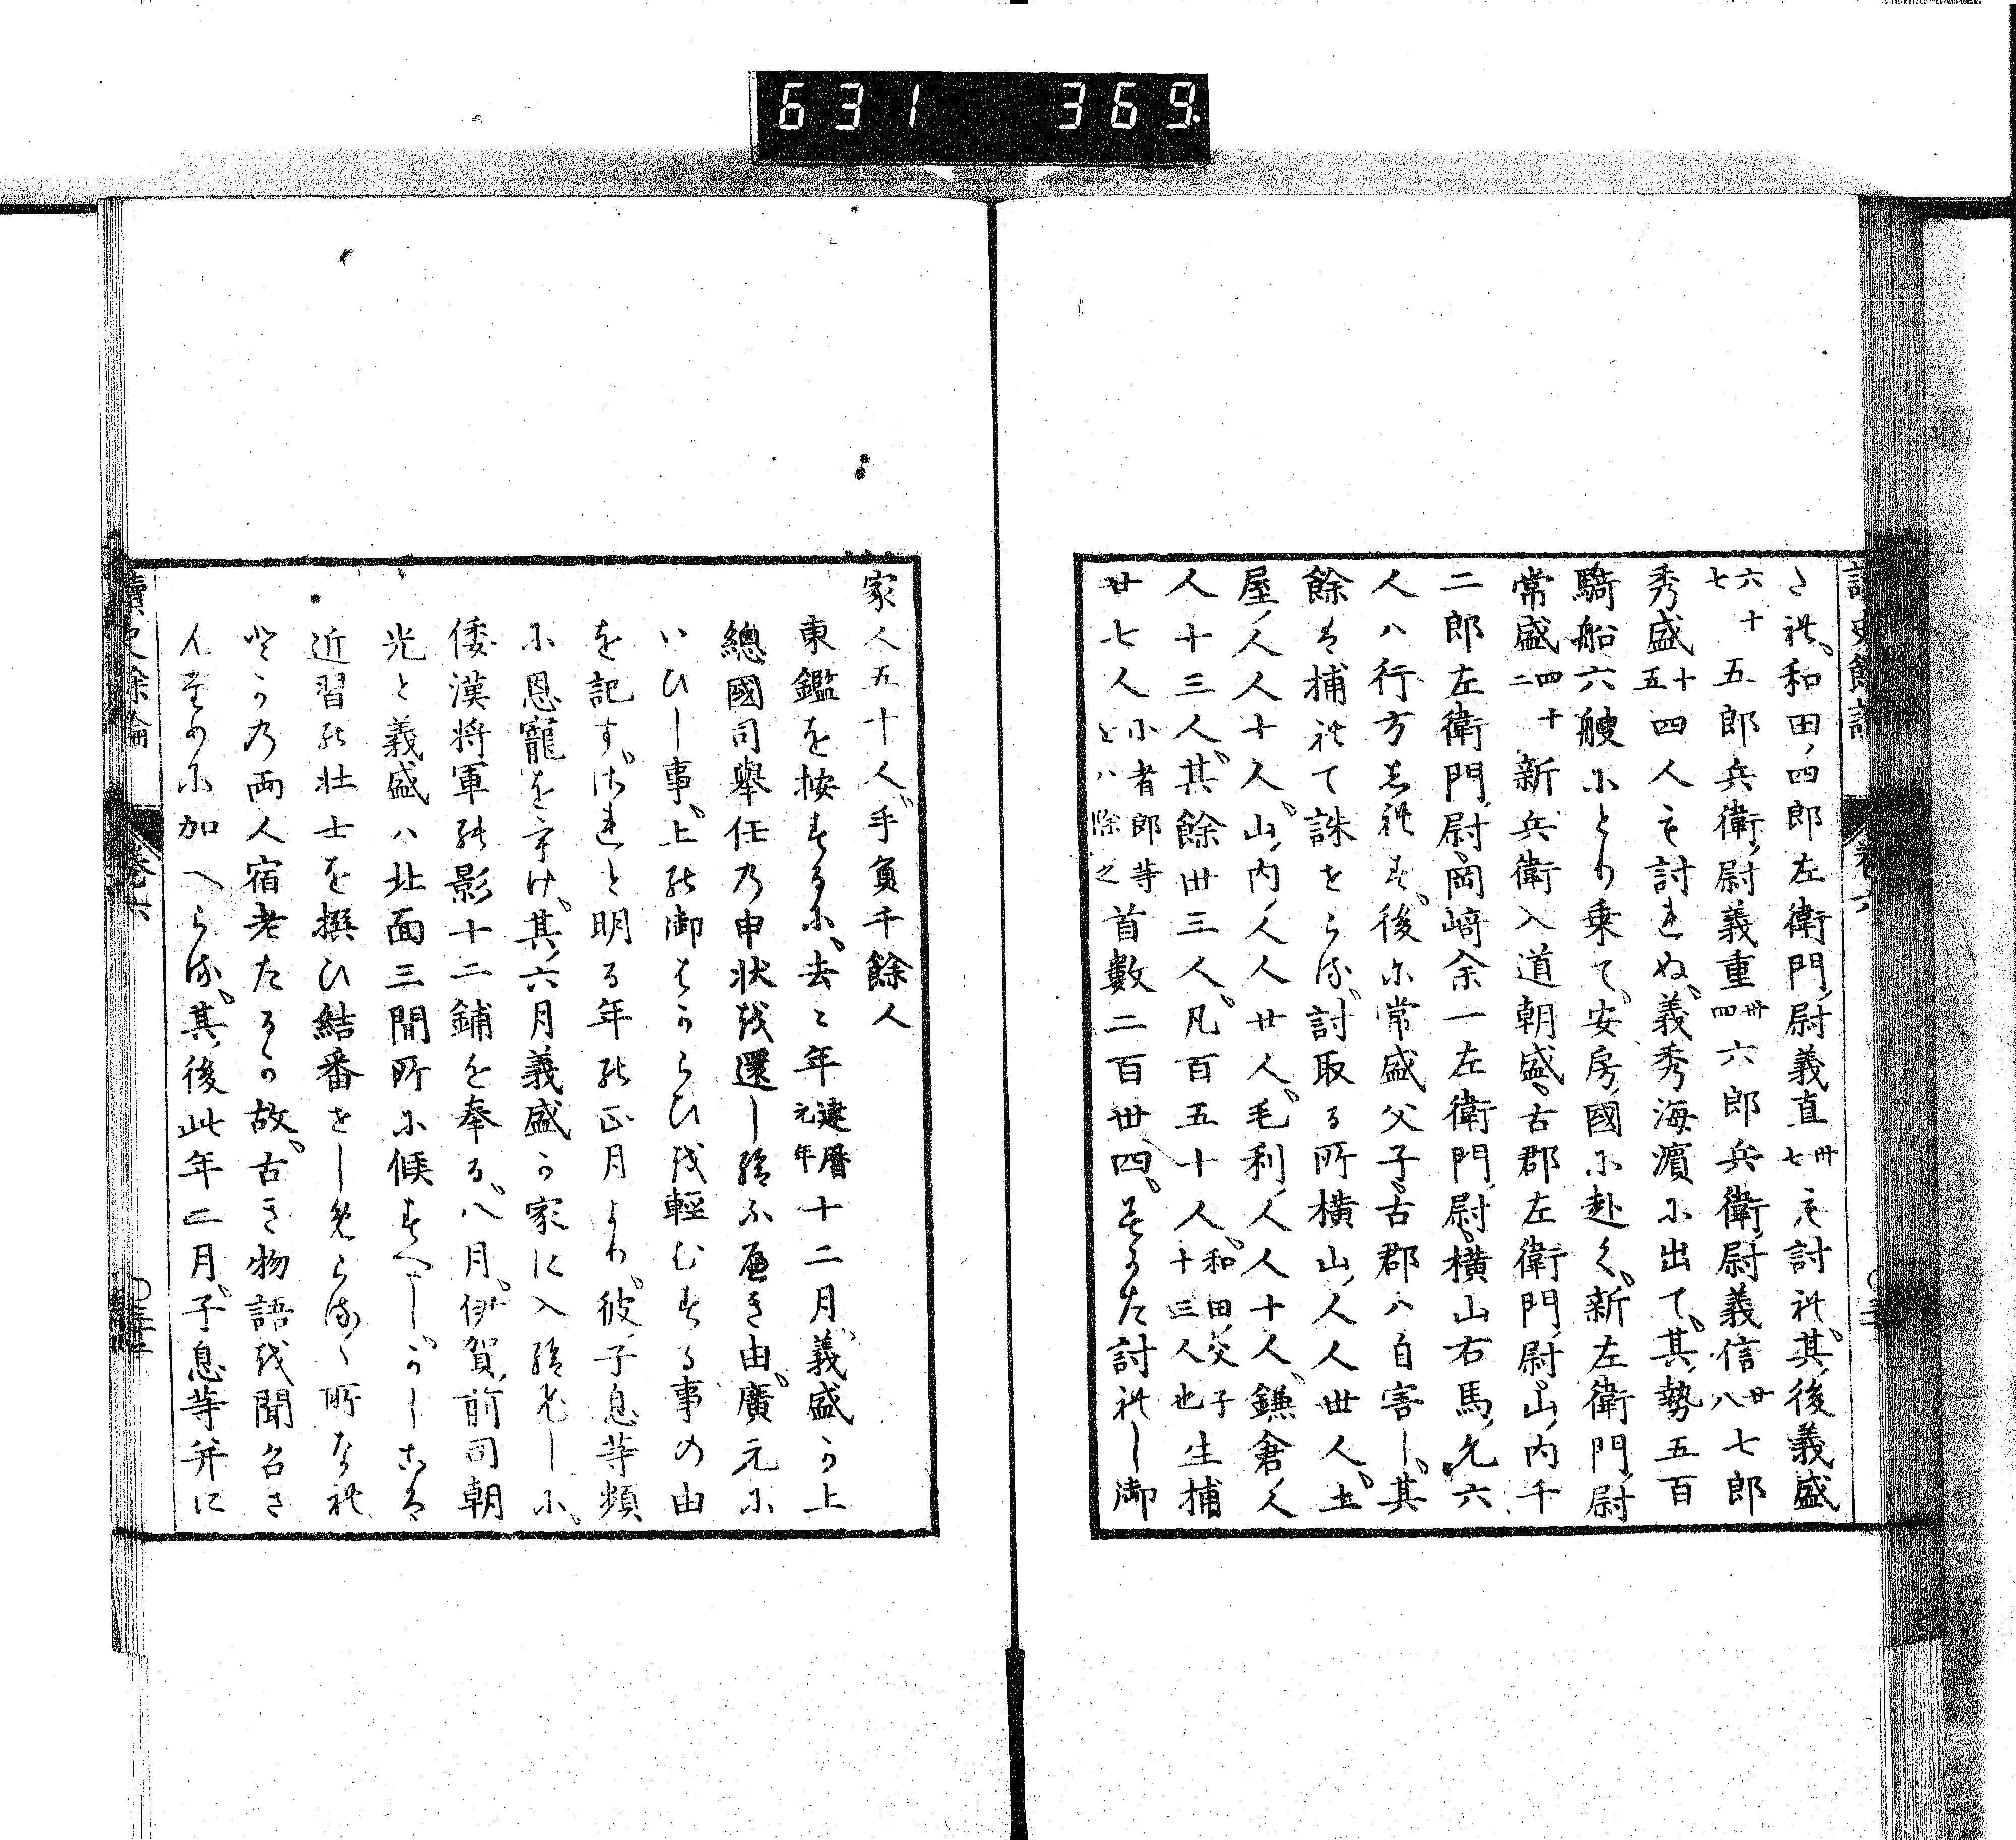 631 369
さ礼和田四郎左衛門尉義直卅七も討礼其後義盛
六十七五郎兵衛尉義重卅四六郎兵衛尉義信廿八七郎
秀盛十五四人も討れぬ義秀海濱に出て其勢五百
騎船六艘にとり乗て安房國に赴く新左衛門尉
常盛四十二新兵衛入道朝盛古郡左衛門尉山内千
二郎左衛門尉岡﨑余一左衛門尉横山右馬允六
人八行方志礼す後に常盛父子古郡八自害し其
餘は捕礼て誅をらる討取る所横山人人卅人土
屋人人十人山内人人廿人毛利人人十人鎌倉人
人十三人其餘卅三人凡百五十人和田父子十三人也生捕
廿七人小者郎等とハ除之首數二百卅四そのた討礼し御
家人五十人手負千餘人
東鑑を按するに去々年建暦元年十二月義盛か上
總國司舉任乃申状を還し給ふ遍き由廣元に
いひし事上の御はからひを輕むする事の由
を記すされと明る年の正月より彼子息等頻
に恩寵をうけ其六月義盛か家に入給ひしに
倭漢将軍の影十二鋪を奉る八月伊賀前司朝
光と義盛ハ北面三間所に候すへしかしこは
近習の壮士を撰ひ結番をしめらる所な礼
とか乃両人宿老たるの故古き物語を聞召さ
んために加へらる其後此年二月子息等并に
讀史餘論 巻六